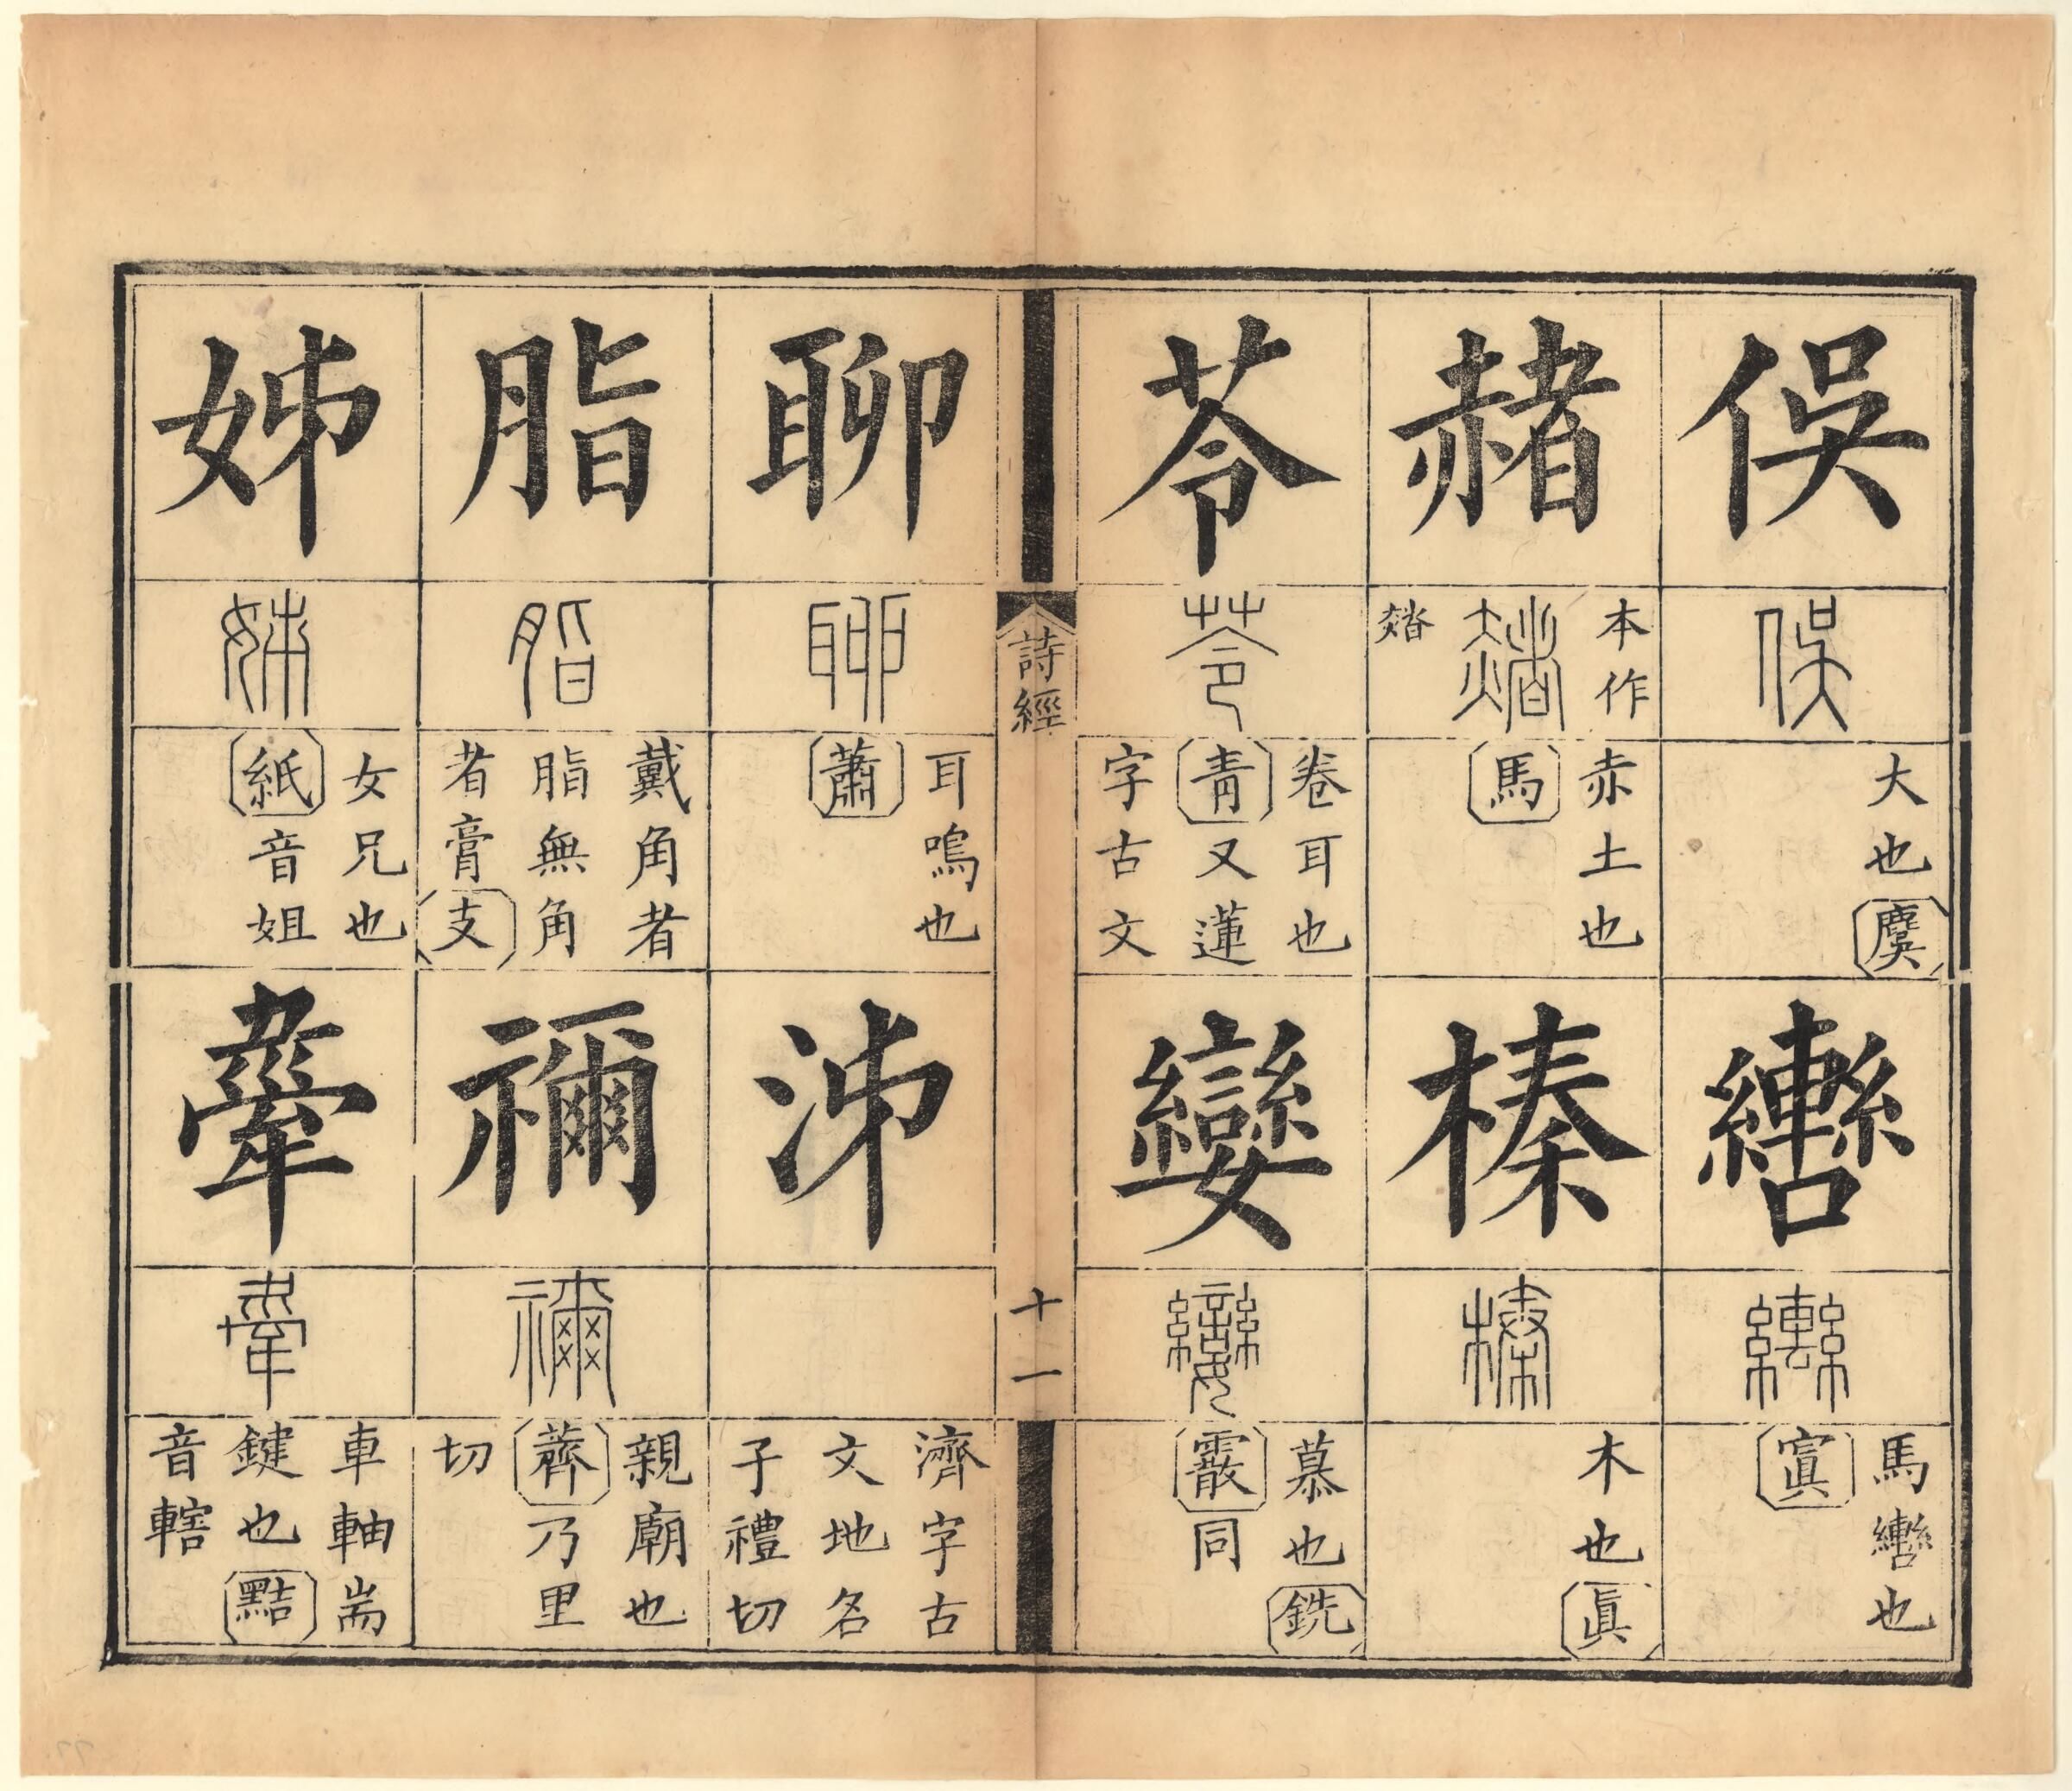 俁
俁
大也虞
轡
轡
馬轡也
寘
赭
本作
赭
赤土也
馬
榛
榛
木也眞
苓
苓
卷耳也
青又蓮
字古文
孌
孌
慕也銑
霰同
詩經
十一
聊
聊
耳鳴也
蕭
泲
濟字古
文地名
子禮切
脂
脂
戴角者
脂無角
者膏支
禰
禰
親廟也
薺乃里
切
姊
姊
女兄也
紙音姐
舝
舝
車軸耑
鍵也黠
音轄